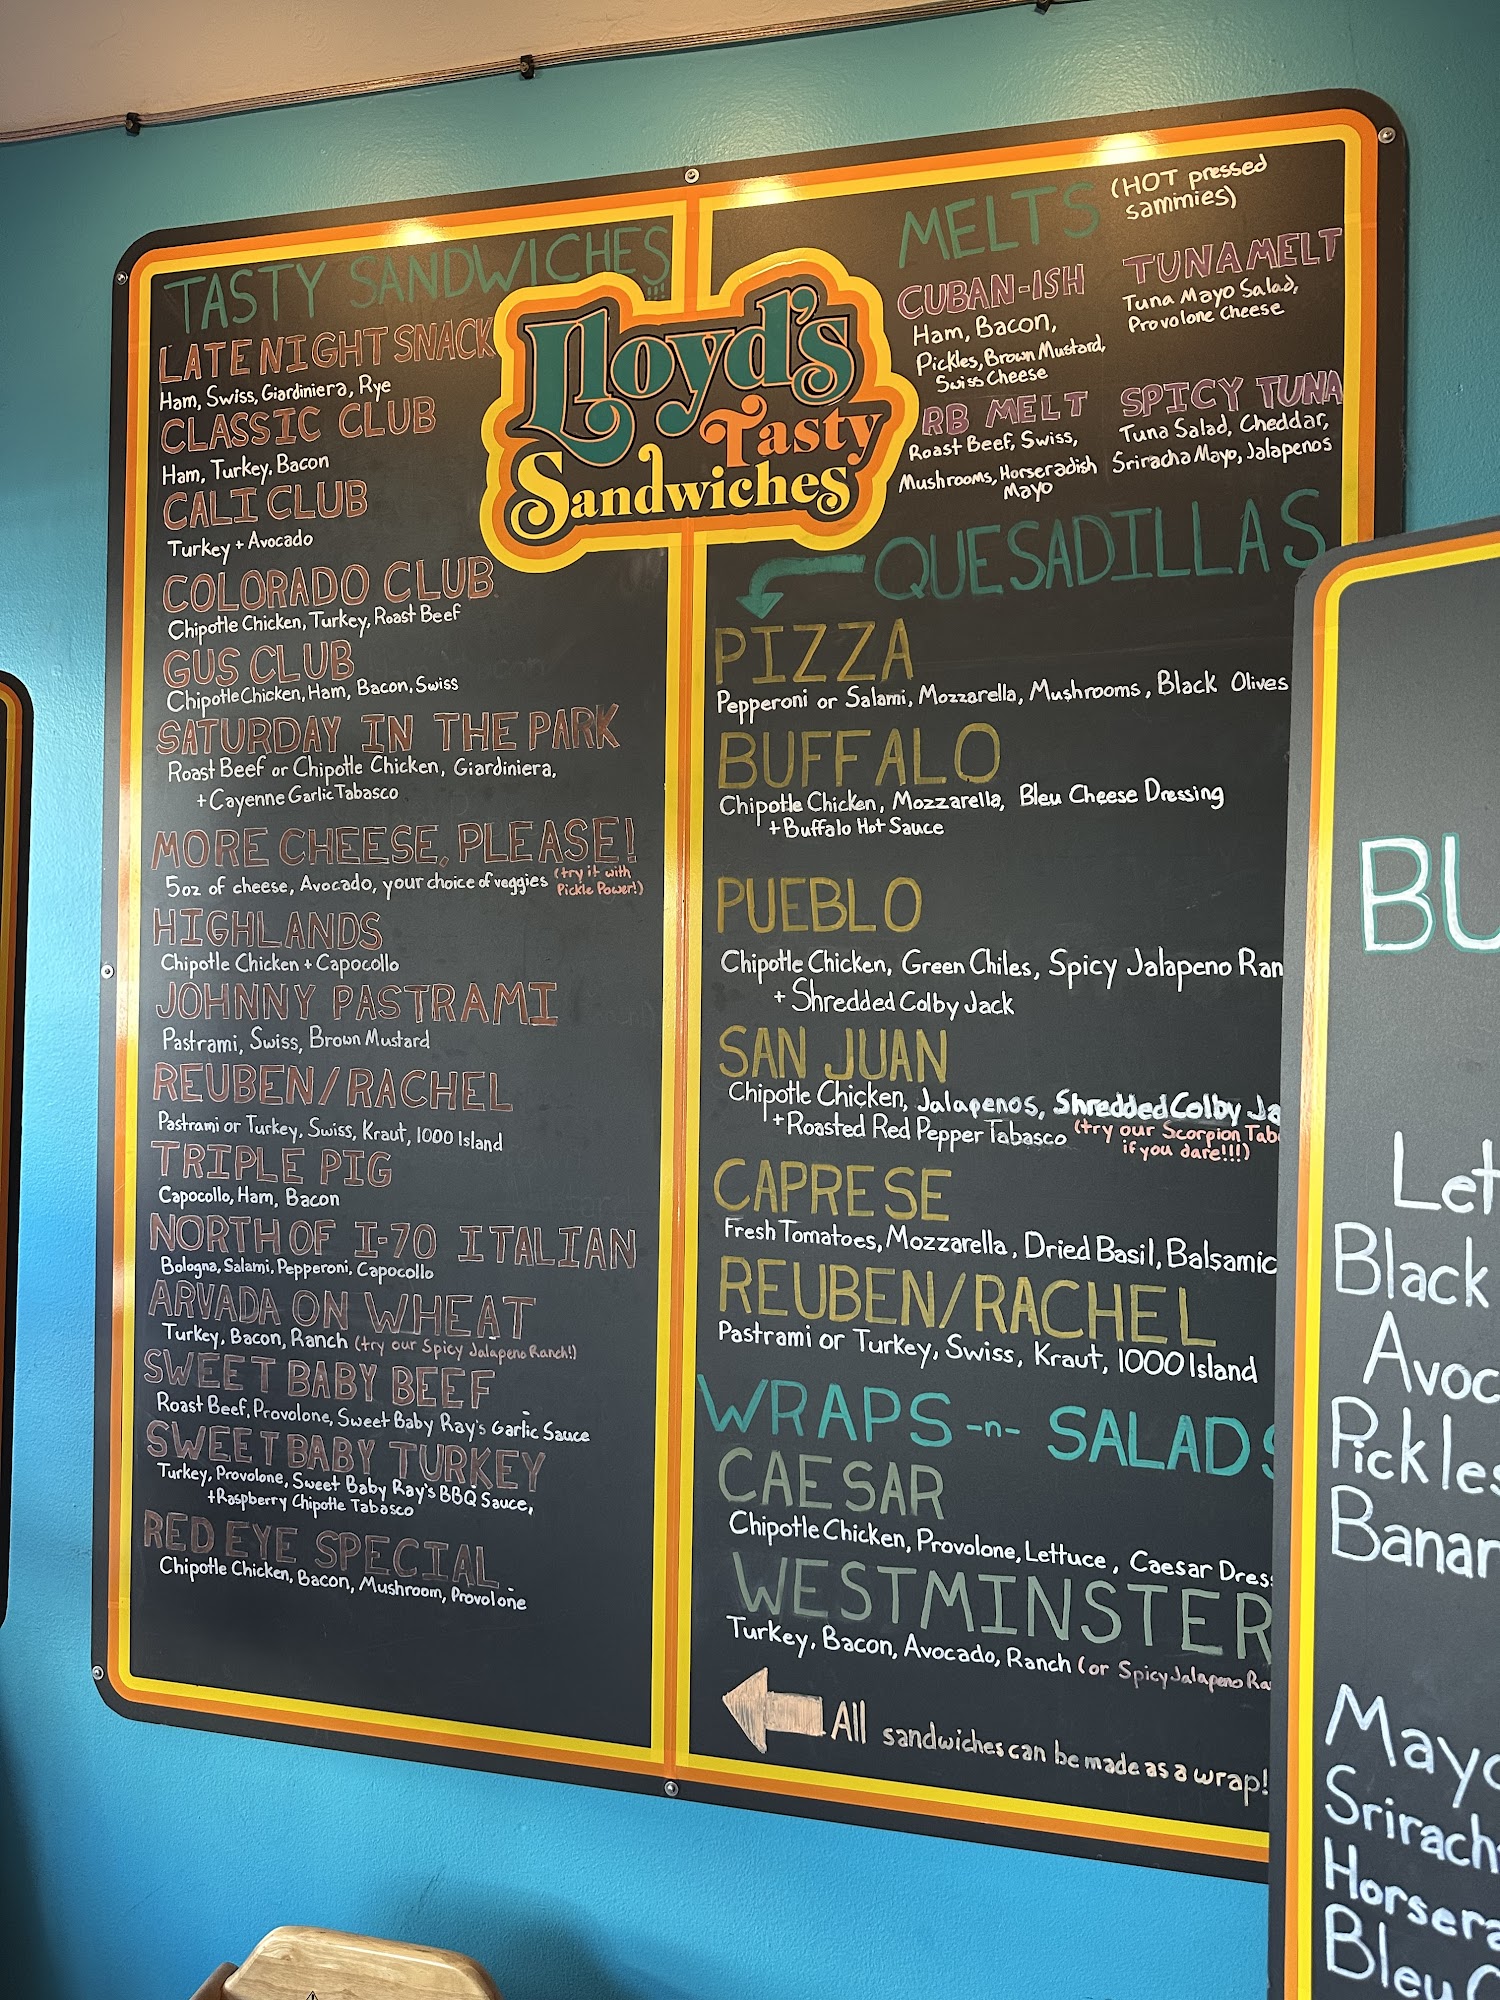 TASTY SANDWICHES
LATE NIGHT SNACK
Ham, Swiss, Giardiniera, Rye
CLASSIC CLUB
Ham, Turkey, Bacon
CALI CLUB
Turkey + Avocado
COLORADO CLUB
Chipotle Chicken, Turkey, Roast Beef
GUS CLUB
Chipotle Chicken, Ham, Bacon, Swiss
SATURDAY IN THE PARK
Roast Beef or Chipotle Chicken, Giardiniera,
+ Cayenne Garlic Tabasco
MORE CHEESE, PLEASE!
5oz of cheese, Avocado, your choice of veggies (try it with
Pickle Power!)
HIGHLANDS
Chipotle Chicken + Capocollo
JOHNNY PASTRAMI
Pastrami, Swiss, Brown Mustard
REUBEN/RACHEL
Pastrami or Turkey, Swiss, Kraut, 1000 Island
TRIPLE PIG
Capocollo, Ham, Bacon
NORTH OF I-70 ITALIAN
Bologna, Salami, Pepperoni, Capocollo
ARVADA ON WHEAT
Turkey, Bacon, Ranch (try our Spicy Jalapeno Ranch!)
SWEET BABY BEEF
Roast Beef, Provolone, Sweet Baby Ray's Garlic Sauce
SWEET BABY TURKEY
Turkey, Provolone, Sweet Baby Ray's BBQ Sauce,
+Raspberry Chipotle Tabasco
RED EYE SPECIAL
Chipotle Chicken, Bacon, Mushroom, Provolone
Lloyd's
Tasty
Sandwiches
MELTS (HOT pressed
sammies)
CUBAN-ISH
Ham, Bacon,
Pickles, Brown Mustard,
Swiss Cheese
TUNA MELT
Tuna Mayo Salad,
Provolone Cheese
RB MELT
Roast Beef, Swiss,
Mushrooms, Horseradish
Mayo
SPICY TUNA
Tuna Salad, Cheddar,
Sriracha Mayo, Jalapenos
QUESADILLAS
PIZZA
Pepperoni or Salami, Mozzarella, Mushrooms, Black Olives
BUFFALO
Chipotle Chicken, Mozzarella, Bleu Cheese Dressing
+ Buffalo Hot Sauce
PUEBLO
Chipotle Chicken, Green Chiles, Spicy Jalapeno Ran
+ Shredded Colby Jack
SAN JUAN
Chipotle Chicken, Jalapenos, Shredded Colby Ja
+Roasted Red Pepper Tabasco (try our Scorpion Tab
if you dare!!!)
CAPRESE
Fresh Tomatoes, Mozzarella, Dried Basil, Balsamic
REUBEN/RACHEL
Pastrami or Turkey, Swiss, Kraut, 1000 Island
WRAPS -n- SALADS
CAESAR
Chipotle Chicken, Provolone, Lettuce, Caesar Dress
WESTMINSTER
Turkey, Bacon, Avocado, Ranch (or Spicy Jalapeno Ra
All sandwiches can be made as a wrap!
BU
Let
Black
Avoc
Pickles
Banan
Mayo
Srirach
Horsera
Bleu C